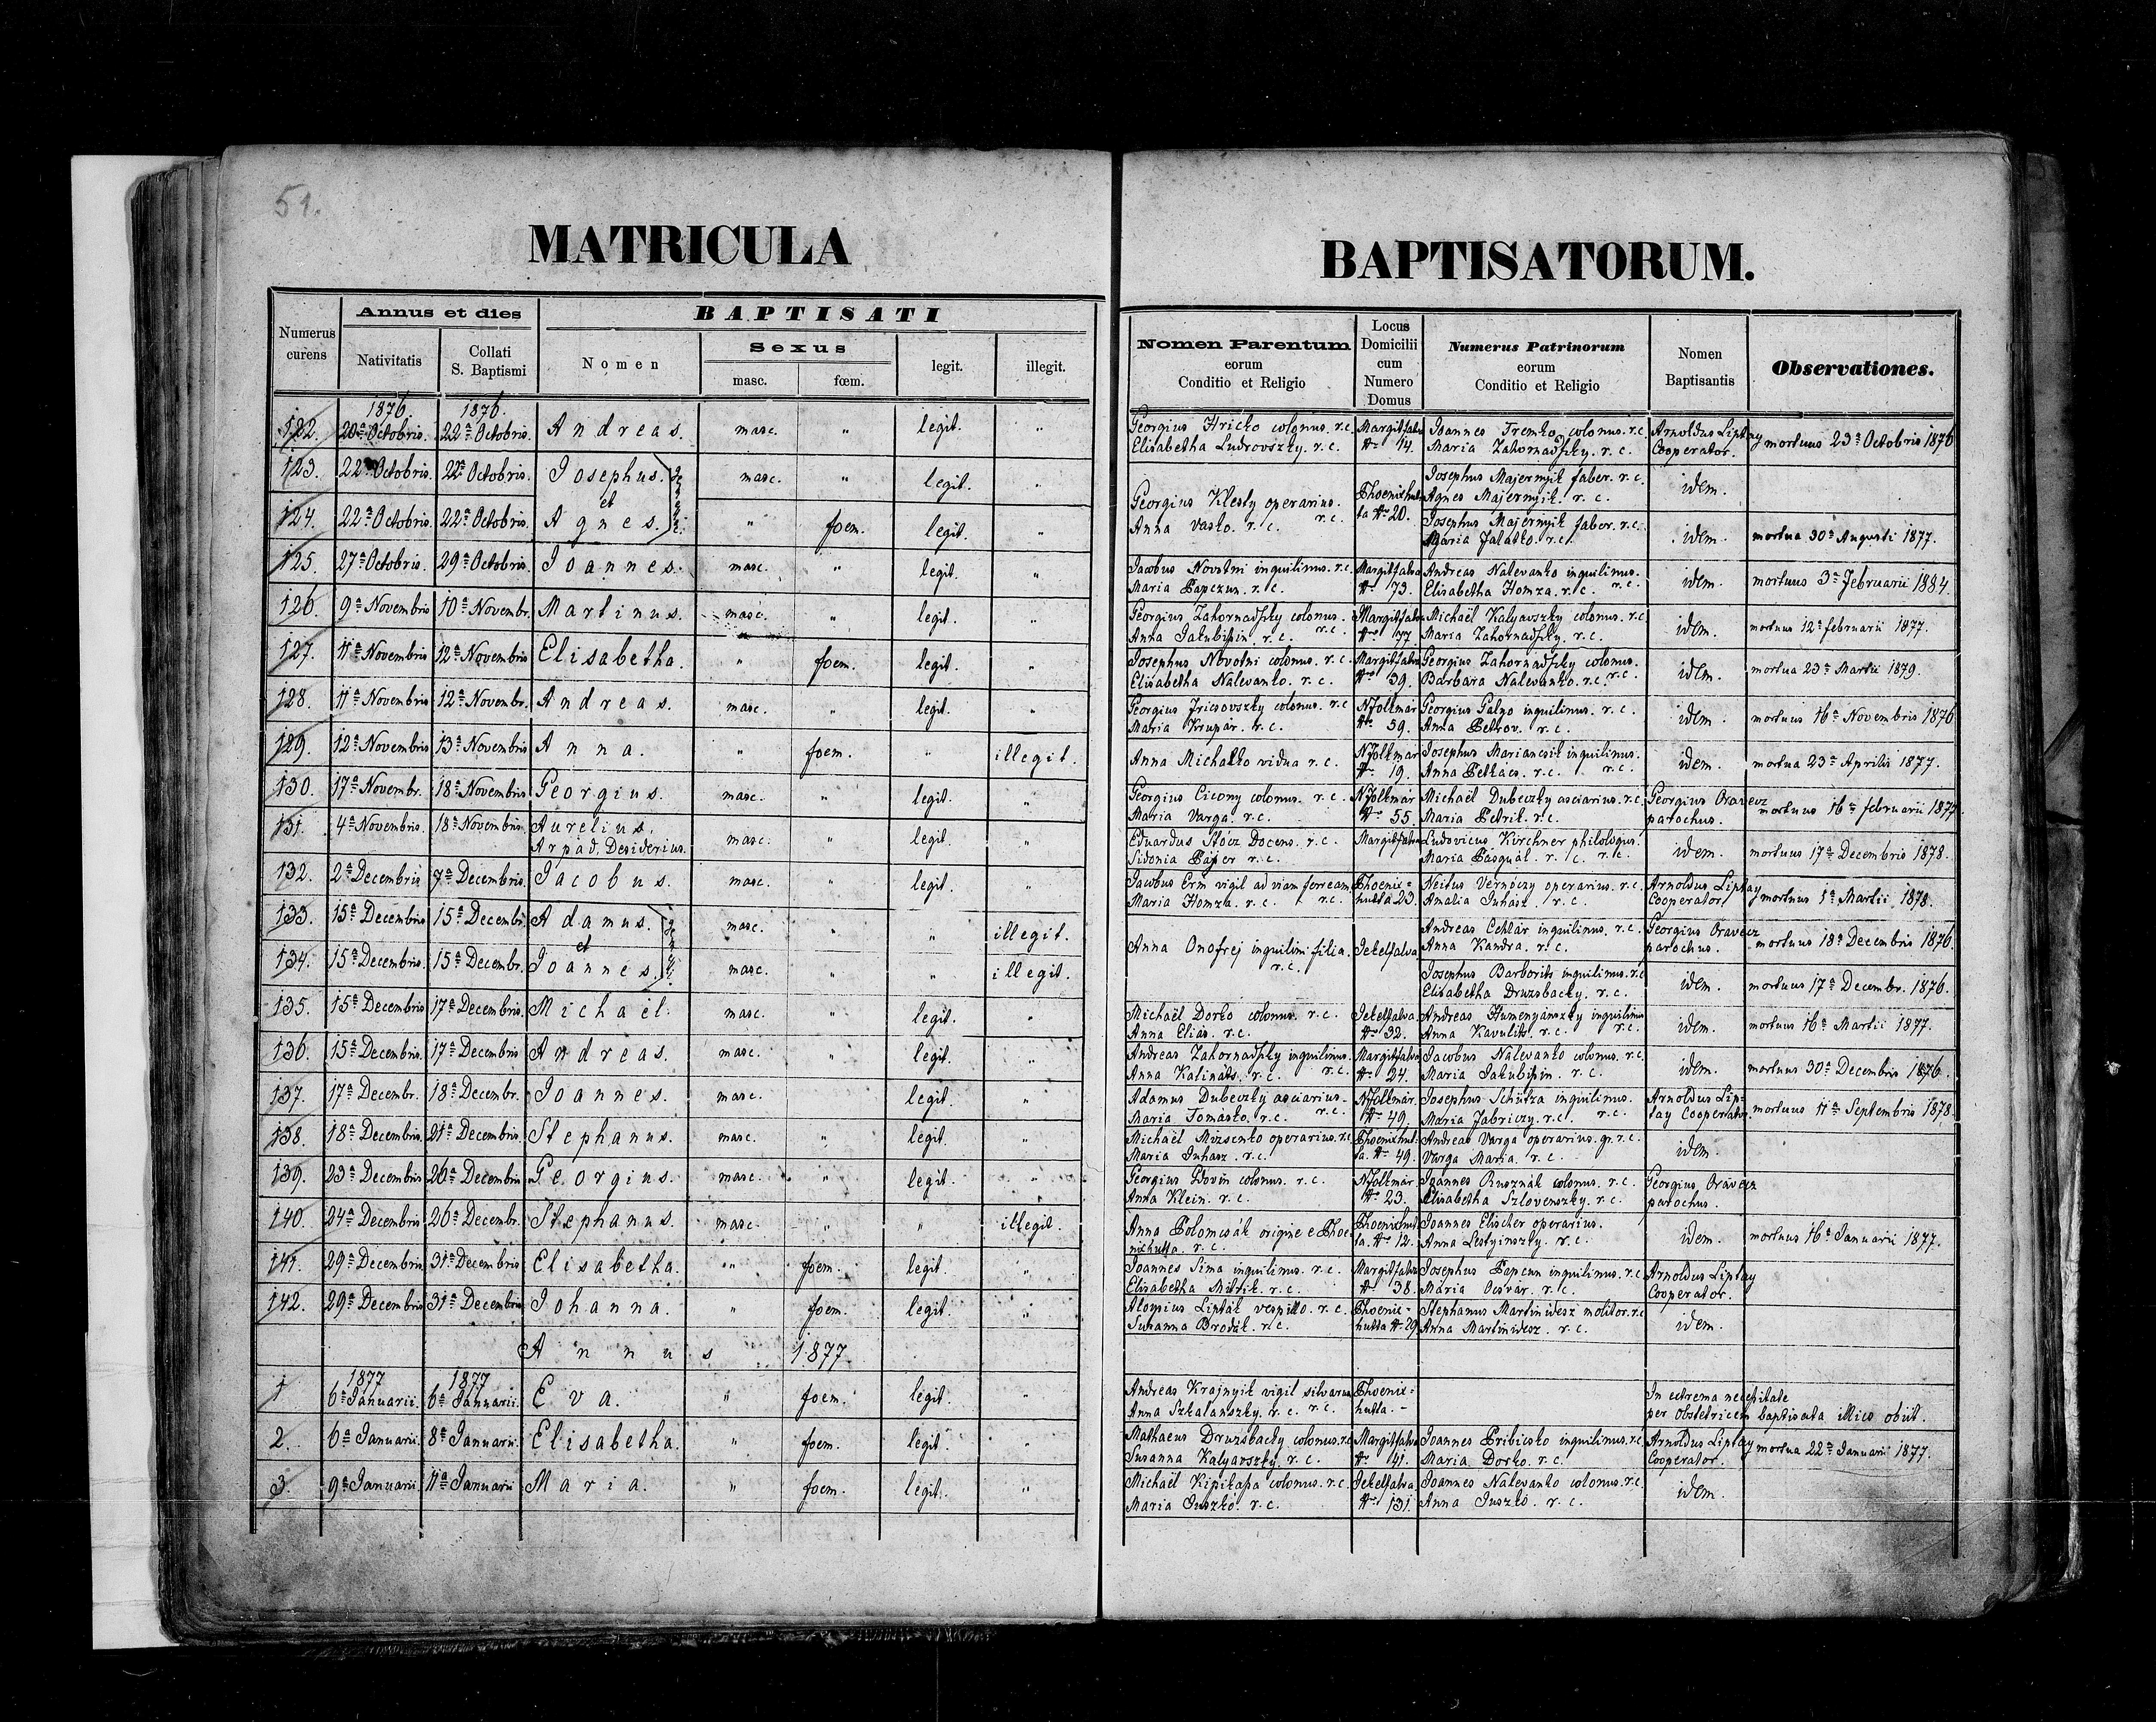 51.
MATRICULA BAPTISATORUM.
Numerus curens
Annus et dies
Nativitatis
Collati S. Baptismi
BAPTISATI
Nomen
Sexus
masc.
fœm.
legit.
illegit.
Nomen Parentum eorum Conditio et Religio
Locus Domicilii cum Numero Domus
Numerus Patrinorum eorum Conditio et Religio
Nomen Baptisantis
Observationes.
1876. 1876.
122. 20ª Octobris. 22ª Octobris. Andreas. masc. " legit. " Georgius Hricko colonus. r.c. Margitfalva Joannes Tremko colonus. r.c. Arnoldus Liptay mortuus 23ª Octobris 1876
Elisabetha Ludrovszky. r.c. Nro 14. Maria Zahornadszky. r.c. Cooperator.
123. 22ª Octobris. 22ª Octobris. Josephus. masc. " legit. " Georgius Klesty operarius. Phoenixhut- Josephus Majernyik faber. r.c. idem.
et gemelli Anna Vasko. r.c. r.c. ta Nro 20. Agnes Majernyik. r.c.
124. 22ª Octobris. 22ª Octobris. Agnes. " foem. legit. " Josephus Majernyik faber. r.c. idem. mortua 30ª Augusti 1877.
Maria Falatko. r.c.
125. 27ª Octobris. 29ª Octobris. Joannes. masc. " legit. " Jacobus Novotni inquilinus. r.c. Margitfalva Andreas Nalevanko inquilinus. idem. mortuus 3ª Februarii 1884.
Maria Papczun. r.c. Nro 73. Elisabetha Homza. r.c. r.c.
126. 9ª Novembris 10ª Novembr. Martinus. masc. " legit. " Georgius Zahornadszky colonus. Margitfalva Michaël Kalyavszky colonus. r.c. idem. mortuus 12ª februarii 1877.
Anna Jakubisin r.c. r.c. Nro 77 Maria Zahornadszky. r.c.
127. 11ª Novembris 12ª Novembris Elisabetha. " foem. legit. " Josephus Novotni colonus. r.c. Margitfalva Georgius Zahornadszky colonus. idem. mortua 23ª Martii 1879.
Elisabetha Nalevanko. r.c. Nro 39. Barbara Nalevanko. r.c. r.c.
128. 11ª Novembris 12ª Novembr. Andreas. masc. " legit. " Georgius Fricsovszky colonus. r.c. N Folkmár Georgius Galgo inquilinus. r.c. idem. mortuus 16ª Novembris 1876
Maria Krupár. r.c. Nro 59. Anna Petrov. r.c.
129. 12ª Novembris 13ª Novembris Anna. " foem. " illegit. Anna Michalko vidua r.c. N Folkmar Josephus Mariancsik inquilinus. idem. mortua 23ª Aprilis 1877.
Nro 19. Anna Petkacs. r.c. r.c.
130. 17ª Novembr. 18ª Novembris Georgius. masc. " legit. " Georgius Cicony colonus. r.c. N Folkmár Michaël Dubeczky asciarius. r.c. Georgius Oravecz mortuus 16ª februarii 1877
Maria Varga. r.c. Nro 55. Maria Petrik. r.c. parochus.
131. 4ª Novembris. 18ª Novembris Aurelius. masc. " legit. " Eduardus Stócz Docens. r.c. Margitfalva Ludovicus Kirchner philologus. idem. mortuus 17ª Decembris 1878.
Arpad, Desiderius. Sidonia Paper r.c. Maria Pasquál. r.c. r.c.
132. 2ª Decembris 7ª Decembris. Jacobus. masc. " legit. " Jacobus Erm vigil ad viam ferream Phoenix- Neitus Vernóczy operarius. r.c. Arnoldus Liptay mortuus 1ª Martii 1878.
Maria Homza. r.c. r.c. hutta 23. Amalia Juhász. r.c. Cooperator.
133. 15ª Decembris 15ª Decembr. Adamus. masc. " " illegit. Anna Onofrej inquilini filia. Jekelfalva Andreas Cehlár inquilinus. r.c. Georgius Oravecz mortuus 18ª Decembris 1876.
et gemelli r.c. Anna Kandra. r.c. parochus.
134. 15ª Decembris. 15ª Decembr. Joannes. masc. " " illegit. Josephus Barborits inquilinus. r.c. idem. mortuus 17ª Decembr. 1876.
Elisabetha Druzsbacky. r.c.
135. 15ª Decembris 17ª Decembris. Michaël. masc. " legit. " Michaël Dorko colonus. r.c. Jekelfalva Andreas Humenyánszky inquilinus idem. mortuus 16ª Martii 1877.
Anna Eliás. r.c. Nro 32. Anna Kavulits. r.c. r.c.
136. 15ª Decembris. 17ª Decembris Andreas. masc. " legit. " Andreas Zahornadszky inquilinus. Margitfalva Jacobus Nalevanko colonus. r.c. idem. mortuus 30ª Decembris 1876.
Anna Kalináts. r.c. r.c. Nro 24. Maria Jakubisin. r.c.
137. 17ª Decembr. 18ª Decembr. Joannes. masc. " legit. " Adamus Dubeczky asciarius. N Folkmár. Josephus Schütza inquilinus. Arnoldus Lip- mortuus 11ª Septembris 1878.
Maria Tomasko. r.c. r.c. Nro 49. Maria Fabriczy. r.c. r.c. tay Cooperator.
138. 18ª Decembris. 21ª Decembris. Stephanus. masc. " legit. " Michaël Mizsenko operarius. r.c. Phoenixhut- Andreas Varga operarius. gr. r.c. idem.
Maria Juhasz. r.c. ta. Nro 49. Varga Maria. r.c.
139. 23ª Decembris 26ª Decembris Georgius. masc. " legit. " Georgius Dovin colonus. r.c. N Folkmár Joannes Rusznák colonus. r.c. Georgius Oravecz
Anna Klein. r.c. Nro 23. Elisabetha Szlovenszky. r.c. parochus.
140. 24ª Decembris 26ª Decembr. Stephanus. masc. " " illegit. Anna Polomcsák origine e Phoe- Phoenixhut- Joannes Elischer operarius. idem. mortuus 16ª Januarii 1877.
nixhutta. r.c. ta. Nro 12. Anna Lestyinszky. r.c.
141. 29ª Decembris 31ª Decembris Elisabetha. " foem. legit. " Joannes Sima inquilinus. r.c. Margitfalva Josephus Papcun inquilinus. r.c. Arnoldus Liptay
Elisabetha r.c. Nro 38. Maria Ocsvár. r.c. Cooperator.
142. 29ª Decembris 31ª Decembris Johanna. " foem. legit. " Aloysius Lipták vespillo. r.c. Phoenix- Stephanus Martinidesz molitor. r.c. idem.
Susanna Brodák. r.c. hutta Nro 29 Anna Martinidesz. r.c.
Annus 1877.
1877 1877
1 6ª Januarii. 6ª Januarii. Eva. " foem. legit. " Andreas Krajnyik vigil silvarum Phoenix- In extrema necessitate
Anna Szkalanszky. r.c. r.c. hutta. - per obstetricem baptisata illico obiit.
2. 6ª Januarii. 8ª Januarii. Elisabetha. " foem. legit. " Mathaeus Druzsbacky colonus. r.c. Margitfalva Joannes Pribicsko inquilinus. r.c. Arnoldus Liptay mortua 22ª Januarii 1877.
Susanna Kalyavszky. r.c. Nro 41. Maria Dorko. r.c. Cooperator.
3. 9ª Januarii. 11ª Januarii Maria. " foem. legit. " Michaël Kipikasa colonus. r.c. Jekelfalva Joannes Nalevanko colonus. r.c. idem.
Maria Juszkó. r.c. Nro 131. Anna Juszkó. r.c.